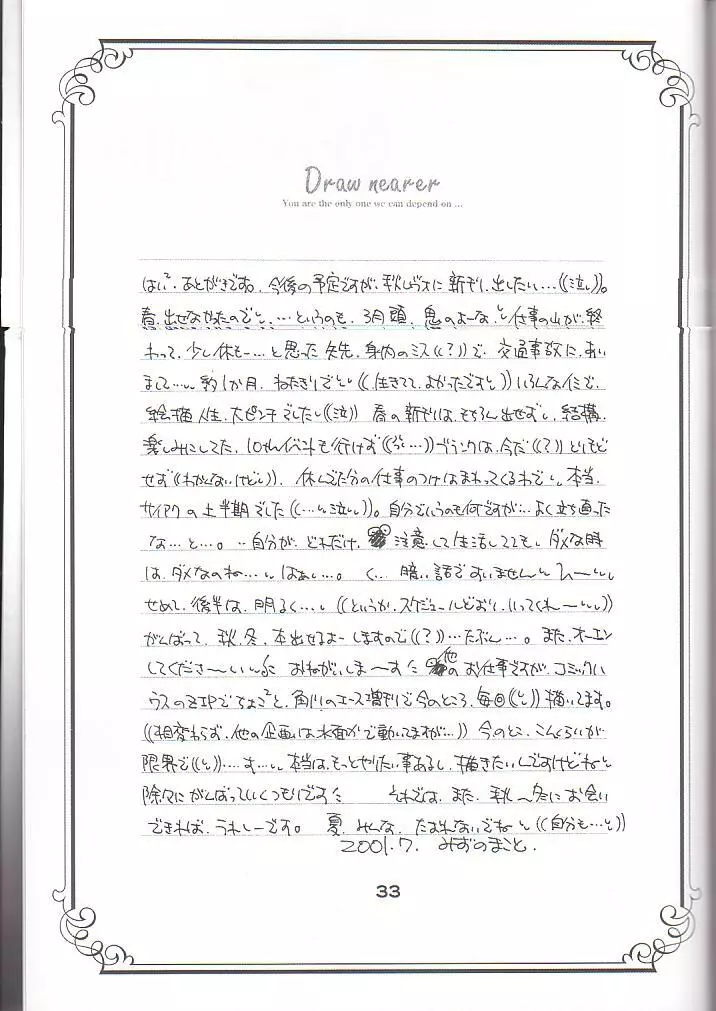 Draw nearer
You are the only one we can depend on ...
はい、あとがきです。今後の予定ですが、秋レヴォに新刊、出したい…((泣))。
春、出せなかったのでと、…というのも、3月頭、鬼のよーな、と仕事の山が、終
わって、少し休も…と思った矢先、身内のミス((?))で、交通事故に、あい
まして…約1か月、ねたきりでと((生きてて、よかったですと))いろんなイミで、
絵描人生、大ピンチでした((泣)) 春の新刊は、もちろん出せずし、結構、
楽しみにしてた、イベントも行けず ブランクは、今だ((?))とりもど
せず((わかんないけど))、休んでた分の仕事のつけはまわってくるわで、本当、
サイアクの上半期でした((…泣))。自分でいうのも何ですが…よく立ち直った
な…と…。…自分が、どれだけ、注意して生活しててもダメな時
は、ダメなのね…はぁ…。く…暗い話ですいません
せめて、後半は、明るく…((というか、スケジュールどおり、いってくれー))
がんばって、秋、冬、本出せるよーしますので((?))…たぶん…。また、オーエン
してくださーいー おねがいしまーす 他のお仕事ですが、コミックハ
ウスのZIPでちょこっと、角川のエース増刊で今のところ、毎回 描いてます。
((相変わらず、他の企画は水面下で動いてますが…)) 今のとこ、こんくらいが、
限界で…す…本当は、もっとやりたい事あるし、描きたいんですけどね
除々にがんばっていくつもりです それでは、また、秋〜冬にお会い
できれば、うれしーです。 夏、みんな、たおれないでね ((自分も…))
2001.7. みずのまこと.
33